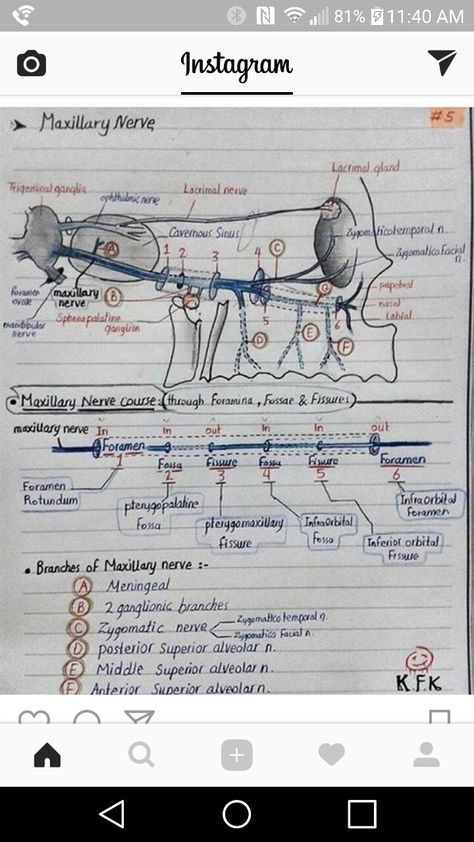 81% 11:40 AM
Instagram
#5
➤ Maxillary Nerve
Lacrimal gland
Trigeminal ganglia
ophthalmic nerve
Lacrimal nerve
Cavernous Sinus
Zygomaticotemporal n.
Zygomatico Facial n.
A
1 2 3 4 C
foramen ovale
maxillary nerve
B
G
palpebral
nasal
Labial
mandibular nerve
Sphenopalatine ganglion
5
6
D
E
F
• Maxillary Nerve course: (through Foramina, Fossae & Fissures)
maxillary nerve In In out In In out
Foramen Fossa Fissure Fossa Fissure Foramen
1 2 3 4 5 6
Foramen Rotundum
pterygopalatine Fossa
pterygomaxillary fissure
InfraOrbital Fossa
Inferior orbital Fissure
InfraOrbital Foramen
• Branches of Maxillary nerve :-
A Meningeal
B 2 ganglionic branches
C Zygomatic nerve
Zygomatico temporal n.
Zygomatico Facial n.
D posterior Superior alveolar n.
E Middle Superior alveolar n.
F Anterior Superior alveolar n.
K.F.K